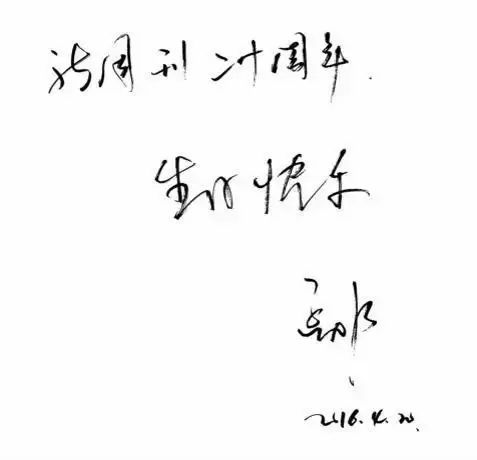 新周刊二十周年.
生日快乐
2016.4.20.